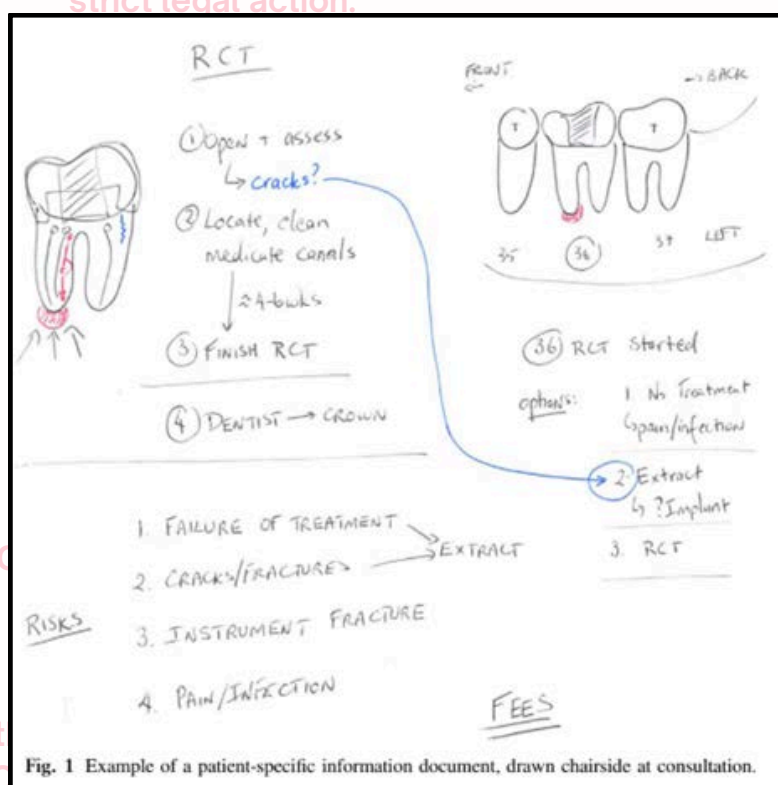 strict legal action.
RCT
① Open + assess
↳ cracks?
② Locate, clean
medicate canals
≈ 4-6wks
③ FINISH RCT
④ DENTIST → CROWN
FRONT
←
→ BACK
T
T
35
36
37
LEFT
36 RCT Started
options:
1. No Treatment
↳ pain/infection
2. Extract
↳ ?Implant
3. RCT
RISKS
1. FAILURE OF TREATMENT
2. CRACKS/FRACTURES
→ EXTRACT
3. INSTRUMENT FRACTURE
4. PAIN/INFECTION
FEES
Fig. 1 Example of a patient-specific information document, drawn chairside at consultation.